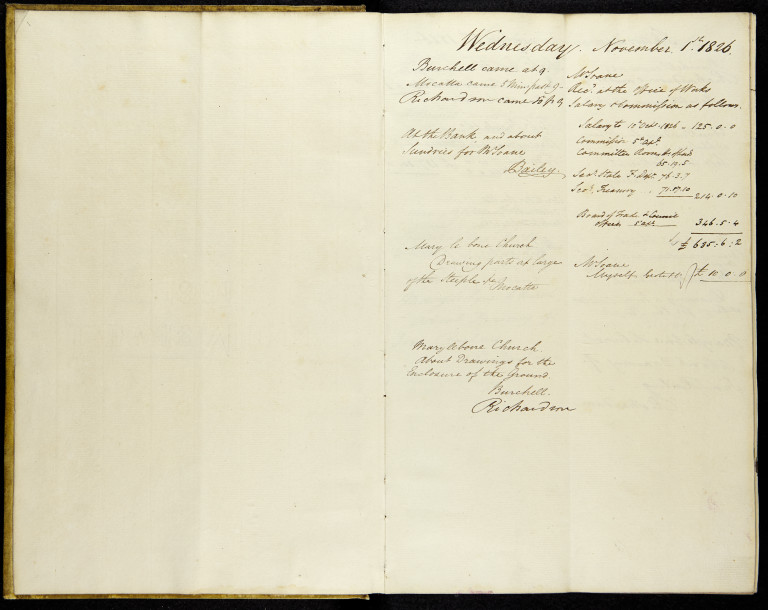 Wednesday. November 1st. 1826.
Burchell came at 9.
Mocatta came 5 Min. past 9.
Richardson came 10 p 9
At the Bank and about
Sundries for Mr Soane
Bailey
Mary le bone Church
Drawing parts at large
of the Steeple &c
Mocatta
Marylebone Church
About Drawings for the
Enclosure of the Ground
Burchell.
Richardson
Mr Soane
Recd. at the Office of Works
Salary & Commission as follows
Salary to 10 Octr. 1826 125.0.0
Commission 5th Apl.
Committee Rooms Ho. of Lords
65.19.5
Secy. State F. Dept. 76.3.7
Treasury 71.17.10
214.0.10
Board of Trade & Council
Offices 5 Apl. 346.5.4
£ 685:6:2
Mr Soane
Myself £10.0.0